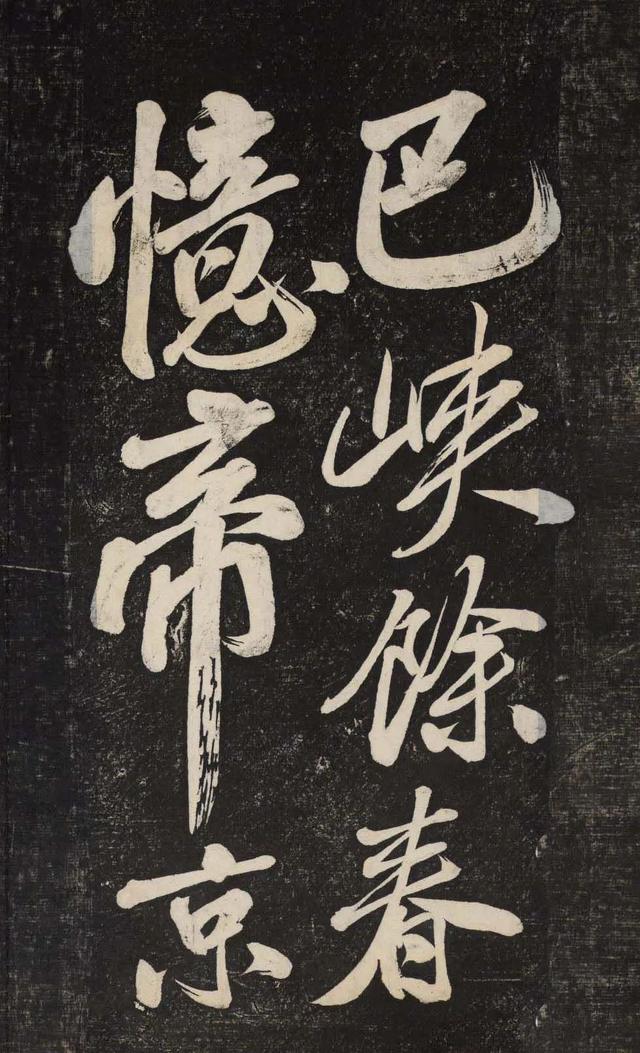 巴峡餘春
憶帝京